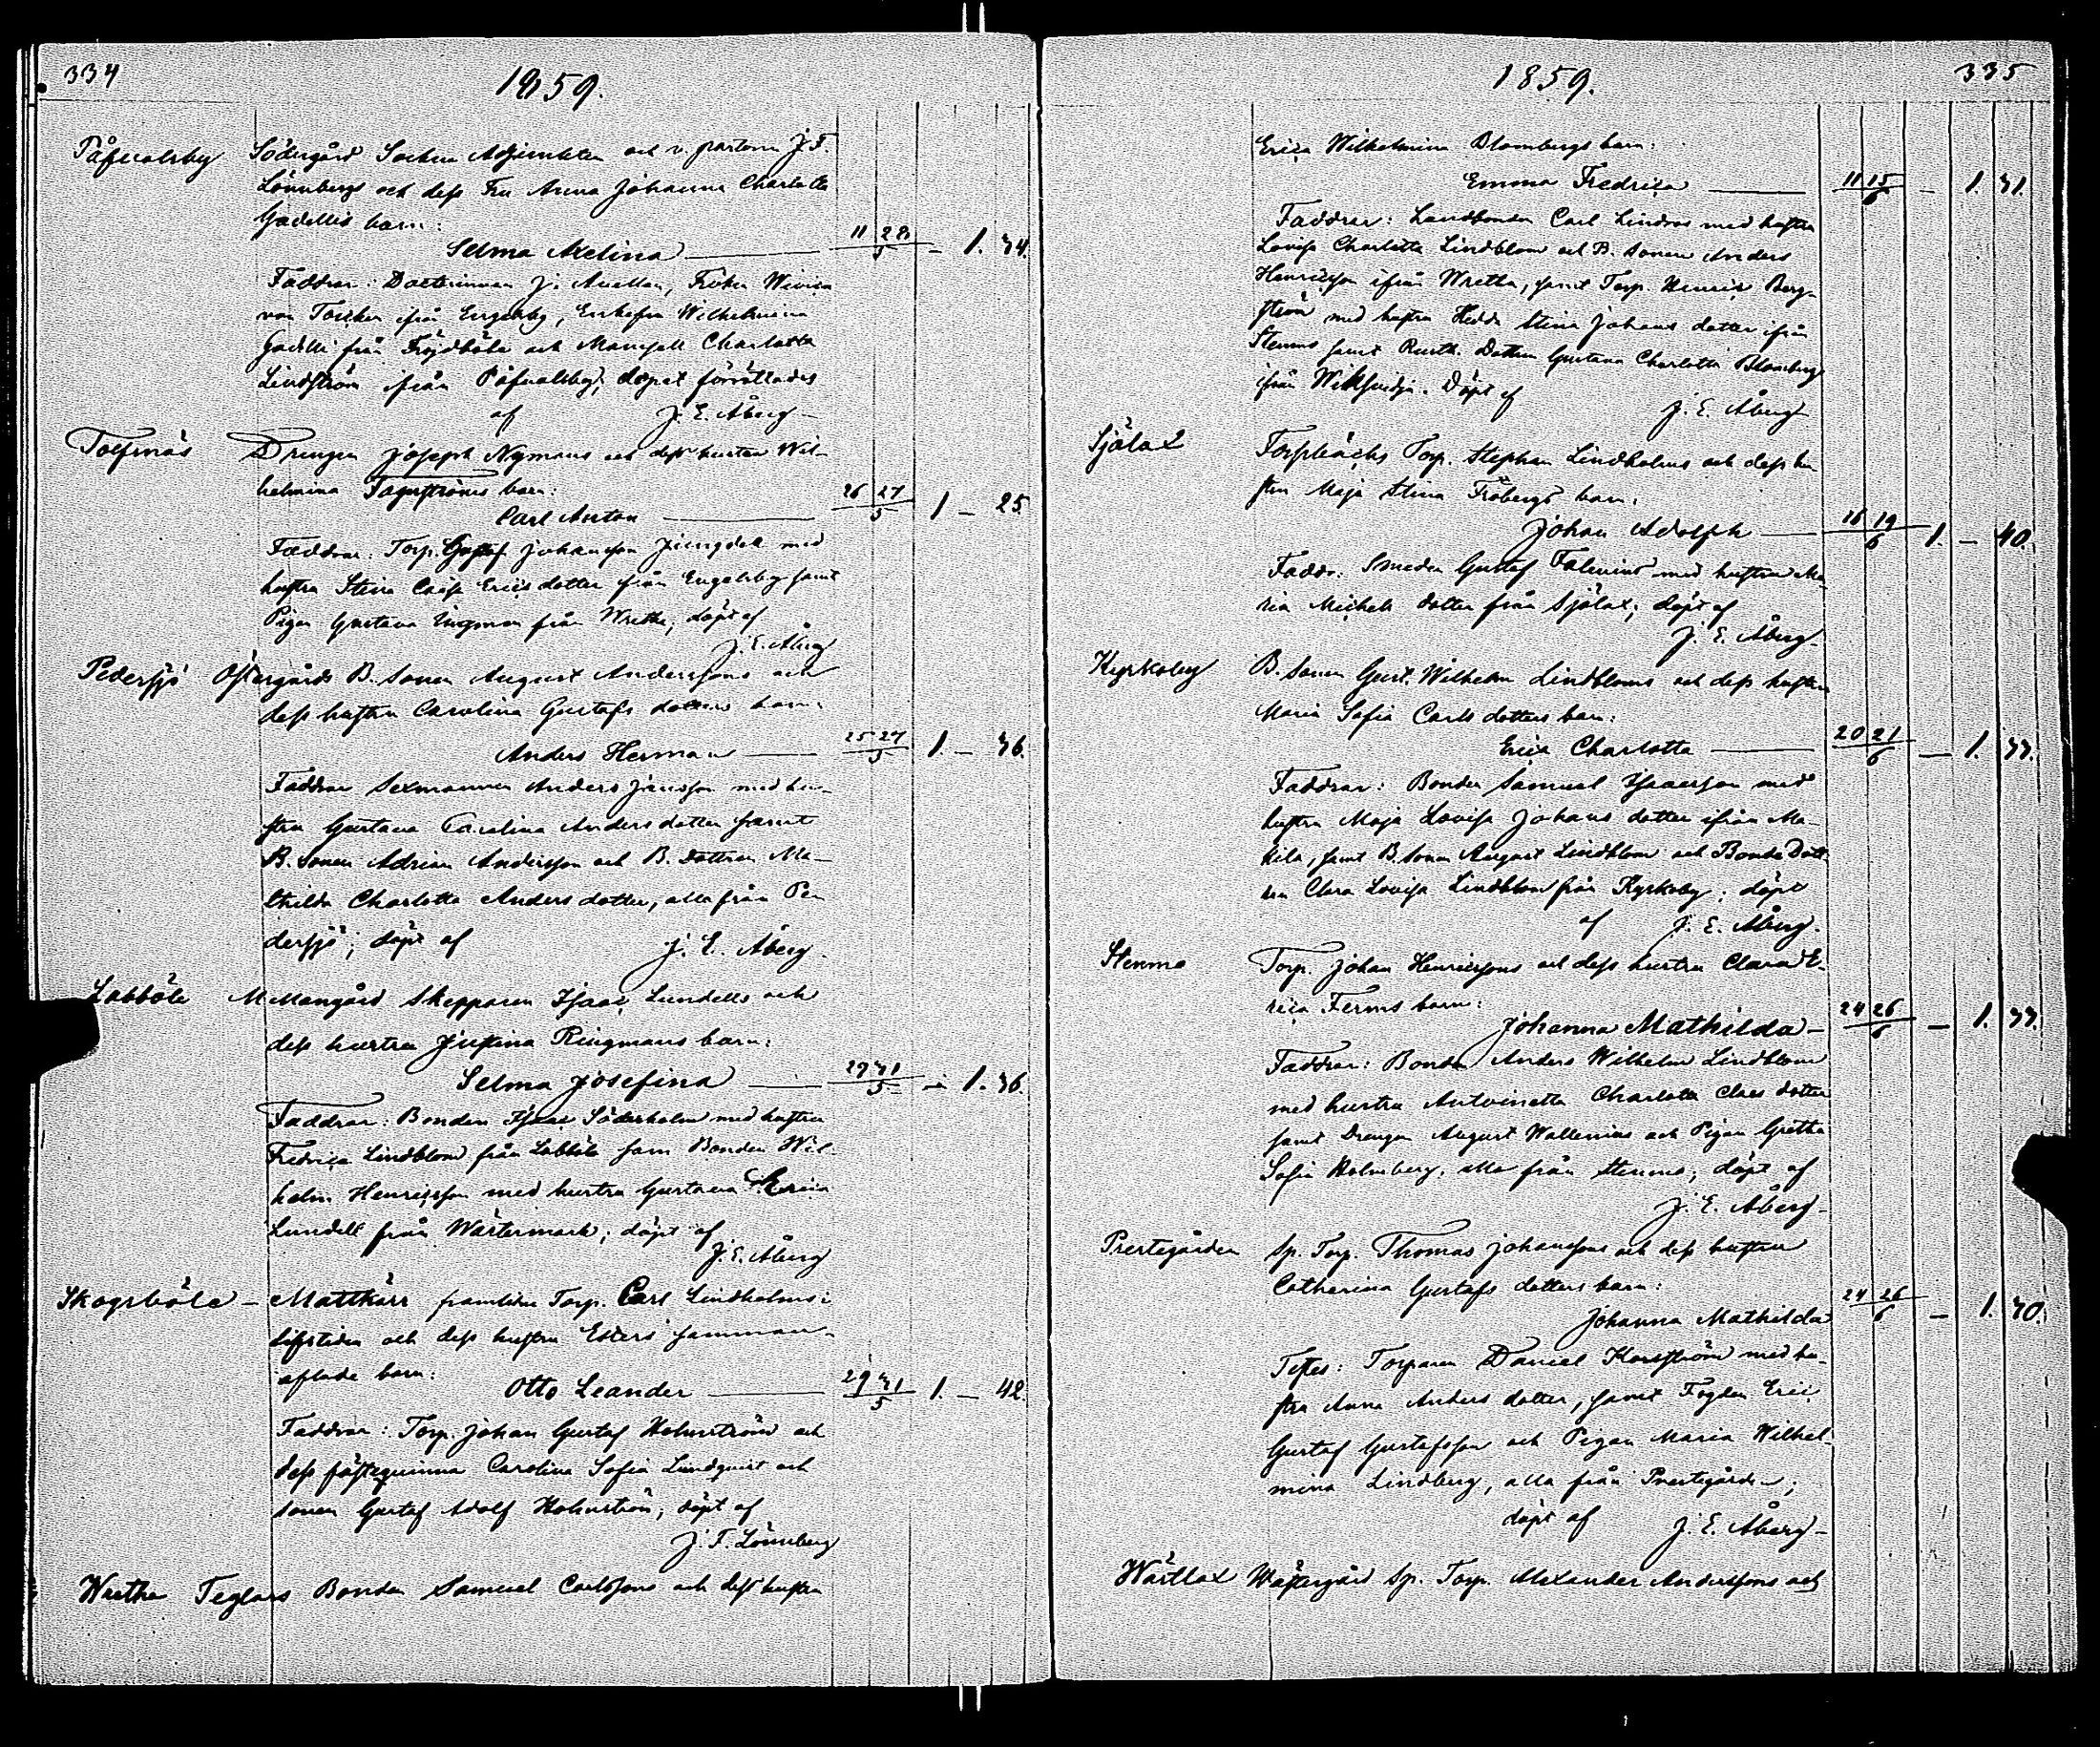 334
1859.
Påfvalsby Södergård Sockne Adjunkten och v. pastorn J. F.
Lönnbergs och dess Fru Anna Johanna Charlotta
Gadellis barn:
Selma Melina 11 28/5 – 1. 34.
Faddrar: Doctorinnan J. Fröken
von ifrån Engelsby, Enkefru Wilhelmina
Gadelli från Fröjdböle och Mamsell Charlotta
Lindström ifrån Påfvalsby; dopet förrättades
af J. E. Åberg
Tolfsnäs Drengen Joseph Nymans och dess hustru Wil-
helmina Fagerströms barn:
Carl Anton 26 27/5 1 – 25.
Faddrar: Torp. Gustaf Johansson Ljungdell med
hustru Stina Caisa Ericsdotter från Engelsby samt
Pigan Gustava från Wretha; döpt af
J. E. Åberg
Pedersjö Östergårds B. Sonen August Anderssons och
dess hustru Carolina Gustafs dotters barn:
Anders Herman 25 27/5 1. – 36.
Faddrar Sexmannen Anders Jansson med hu-
stru Gustava Carolina Anders dotter samt
B. Sonen Adrian Andersson och B. Dottren Ma-
thilda Charlotta Anders dotter, alla från Pe-
dersjö; döpt af J. E. Åberg.
Labböle Mellangård Skepparen Isaac Lundells och
dess hustru Justina Ringmans barn:
Selma Josefina 29 31/5 – 1. 36.
Faddrar: Bonden Isaac Söderholm med hustru
Fredrica Lindblom från Labböle samt Bonden Wil-
helm Henricsson med hustru Gustava Erica
Lundell från Wästermark; döpt af
J. E. Åberg
Skogsböle – Mattkärr framlidne Torp. Carl Lindholms i
lifstiden och dess hustru Esters samman-
aflade barn:
Otto Leander 29 31/5 1. – 42.
Faddrar: Torp. Johan Gustaf Holmström och
dess fästeqvinna Carolina Sofia Lundqvist och
sonen Gustaf Adolf Holmström; döpt af
J. F. Lönnberg
Wretha Teglars Bonden Samuel Carlssons och dess hustru
1859.
335
Erica Wilhelmina Blombergs barn:
Emma Fredrica 11 15/6 – 1. 31.
Faddrar: Landbonden Carl Lindros med hustru
Lovisa Charlotta Lindblom och B. Sonen Anders
Henricsson ifrån Wretha, samt Torp. Henric Berg-
ström med hustru Hedda Stina Johans dotter ifrån
Stenmo samt Rusth. Dottren Gustava Charlotta Blomberg
ifrån Döpt af
J. E. Åberg
Själax Torpbäcks Torp. Stephan Lindholms och dess hu-
stru Maja Stina Fröbergs barn:
Johan Adolph 16 19/6 1. – 40.
Faddr: Smeden Gustaf Falenius med hustru Ma-
ria Michels dotter från Själax; döpt af
J. E. Åberg
Kyrkoby B. Sonen Gust. Wilhelm Lindbloms och dess hustru
Maria Sofia Carls dotters barn:
Erica Charlotta 20 21/6 – 1. 33.
Faddrar: Bonden Samuel Isaacsson med
hustru Maja Lovisa Johans dotter ifrån Me-
kila, samt B. Sonen August Lindblom och Bonde Dott-
ren Clara Lovisa Lindblom från Kyrkoby; döpt
af J. E. Åberg.
Stenmo Torp. Johan Henricssons och dess hustru Clara E-
rica Ferms barn:
Johanna Mathilda – 24 26/6 – 1. 33.
Faddrar: Bonden Anders Wilhelm Lindblom
med hustru Antoinetta Charlotta Claes dotter
samt Drengen August Wallenius och Pigan Gretha
Sofia Holmberg, alla från Stenmo; döpt af
J. E. Åberg
Prestegården Sp. Torp. Thomas Johanssons och dess hustru
Catharina Gustafs dotters barn:
Johanna Mathilda 24 26/6 – 1. 30.
Testes: Torparen Daniel Korsström med hu-
stru Anna Anders dotter, samt Fogden Eric
Gustaf Gustafsson och Pigan Maria Wilhel-
mina Lindberg, alla från Prestegården;
döpt af J. E. Åberg
Wästlax Wästergård Sp. Torp. Alexander Anderssons och